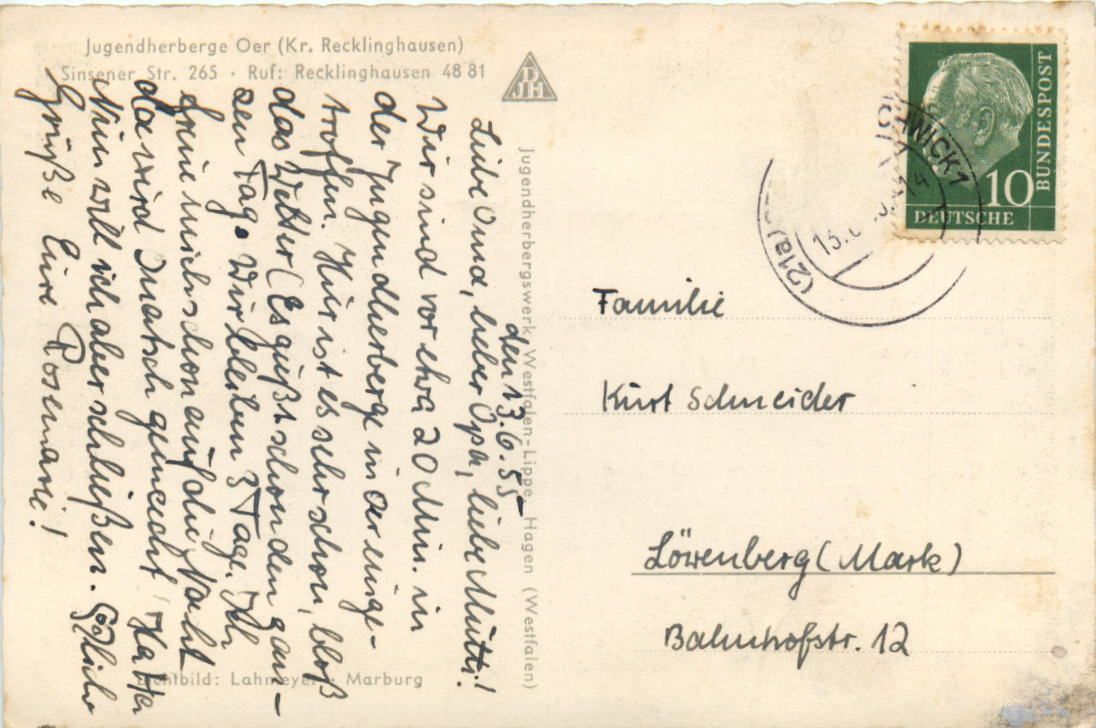 Jugendherberge Oer (Kr. Recklinghausen)
Sinsener Str. 265 · Ruf: Recklinghausen 48 81
DJH
den 13.6.55
Liebe Oma, lieber Opa, liebe Mutti!
Wir sind vor etwa 20 Min. in
der Jugendherberge in Oer einge-
troffen. Hier ist es sehr schön, bloß
das Wetter (Es gießt schon den gan-
zen Tag. Wir bleiben 3 Tage. Ich
freue mich schon auf die Nacht
da wird Quatsch gemacht, Ha Ha
Nun will ich aber schließen.
Grüße Eure Rosemarie!
Jugendherbergswerk Westfalen-Lippe, Hagen (Westfalen)
Lichtbild: Lahmeyer, Marburg
DEUTSCHE
BUNDESPOST
10
(21a)
13.6
Familie
Kurt Schneider
Löwenberg (Mark)
Bahnhofstr. 12